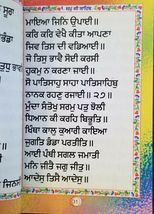 ਮਾਇਆ ਜਿਨਿ ਉਪਾਈ॥
ਕਰਿ ਕਰਿ ਵੇਖੈ ਕੀਤਾ ਆਪਣਾ
ਜਿਵ ਤਿਸ ਦੀ ਵਡਿਆਈ॥
ਜੋ ਤਿਸੁ ਭਾਵੈ ਸੋਈ ਕਰਸੀ
ਹੁਕਮੁ ਨ ਕਰਣਾ ਜਾਈ॥
ਸੋ ਪਾਤਿਸਾਹੁ ਸਾਹਾ ਪਾਤਿਸਾਹਿਬੁ
ਨਾਨਕ ਰਹਣੁ ਰਜਾਈ॥੨੭॥
ਮੁੰਦਾ ਸੰਤੋਖੁ ਸਰਮੁ ਪਤੁ ਝੋਲੀ
ਧਿਆਨ ਕੀ ਕਰਹਿ ਬਿਭੂਤਿ॥
ਖਿੰਥਾ ਕਾਲੁ ਕੁਆਰੀ ਕਾਇਆ
ਜੁਗਤਿ ਡੰਡਾ ਪਰਤੀਤਿ॥
ਆਈ ਪੰਥੀ ਸਗਲ ਜਮਾਤੀ
ਮਨਿ ਜੀਤੈ ਜਗੁ ਜੀਤੁ॥
ਆਦੇਸੁ ਤਿਸੈ ਆਦੇਸੁ॥